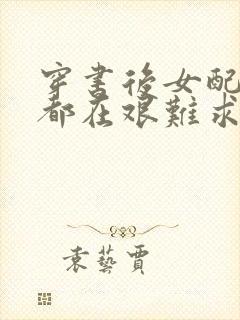 穿書後女配
都在艱難求
袁藝賈